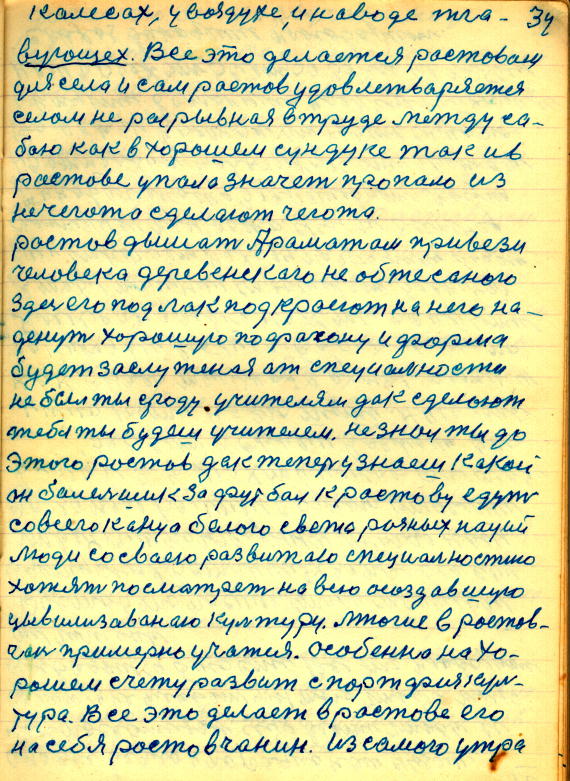 колесах, у воздухе, и наводе пла- 34
вующех. Все это делается ростовам
для села и сам ростов удовлетваряется
селом не разрывная в труде между са-
баю как в хорошем сундуке так и в
ростове упала значет пропало из
нечегота сделают чегота.
ростов дышат Араматам привези
человека деревенскаго не обтесаного
здеч его подлак подкрасют на него на-
денут хорошую пофасону и форма
будет заслуженая от специальности
не был ты сроду учителям дак сделают
тебя ты будеш учителем. не знол ты до
этого ростов дак тепер узнаеш какой
он балельшик за футбал к ростову едут
совсего канца белого света разных наций
люди со сваею развитаю специальностю
хотят посматрет на всю осоздавшую
цывилизаваную културу. многие в ростов-
чан примерно учатся. особенно на хо-
рошем счету развит спорт физкул-
тура. Все это делает в ростове его
на себя ростовчанин. Из самого утра